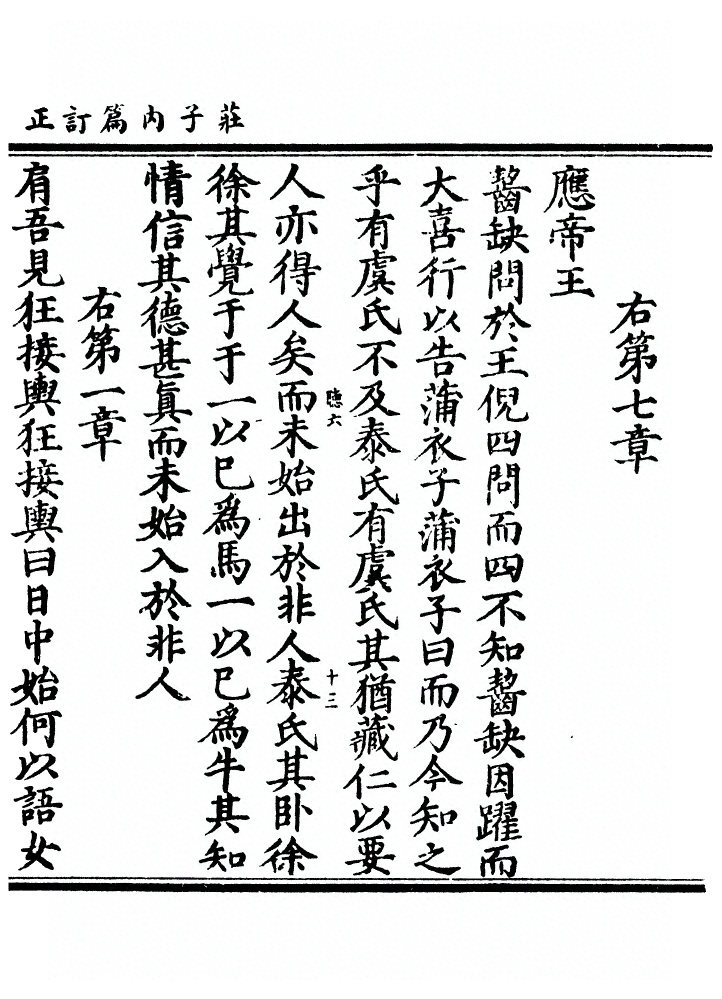 莊子內篇訂正
右第七章
應帝王
齧缺問於王倪四問而四不知齧缺因躍而
大喜行以告蒲衣子蒲衣子曰而乃今知之
乎有虞氏不及泰氏有虞氏其猶藏仁以要
聽六
十三
人亦得人矣而未始出於非人泰氏其卧徐
徐其覺于于一以已爲馬一以已爲牛其知
情信其德甚眞而未始入於非人
右第一章
肩吾見狂接輿狂接輿曰日中始何以語女